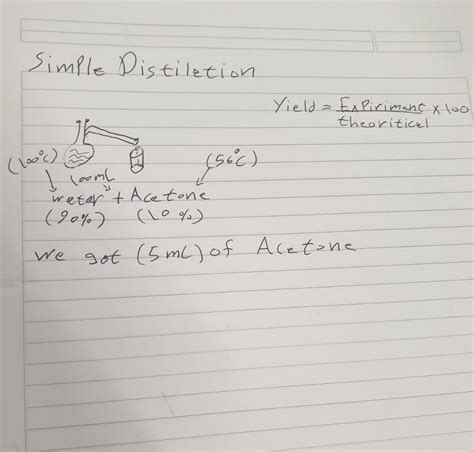 Simple Distiletion
Yield = Expiriment x 100
theoritical
(100°C)
(56°C)
100mL
weter + Acetone
(90%) (10%)
we got (5mL) of Acetone